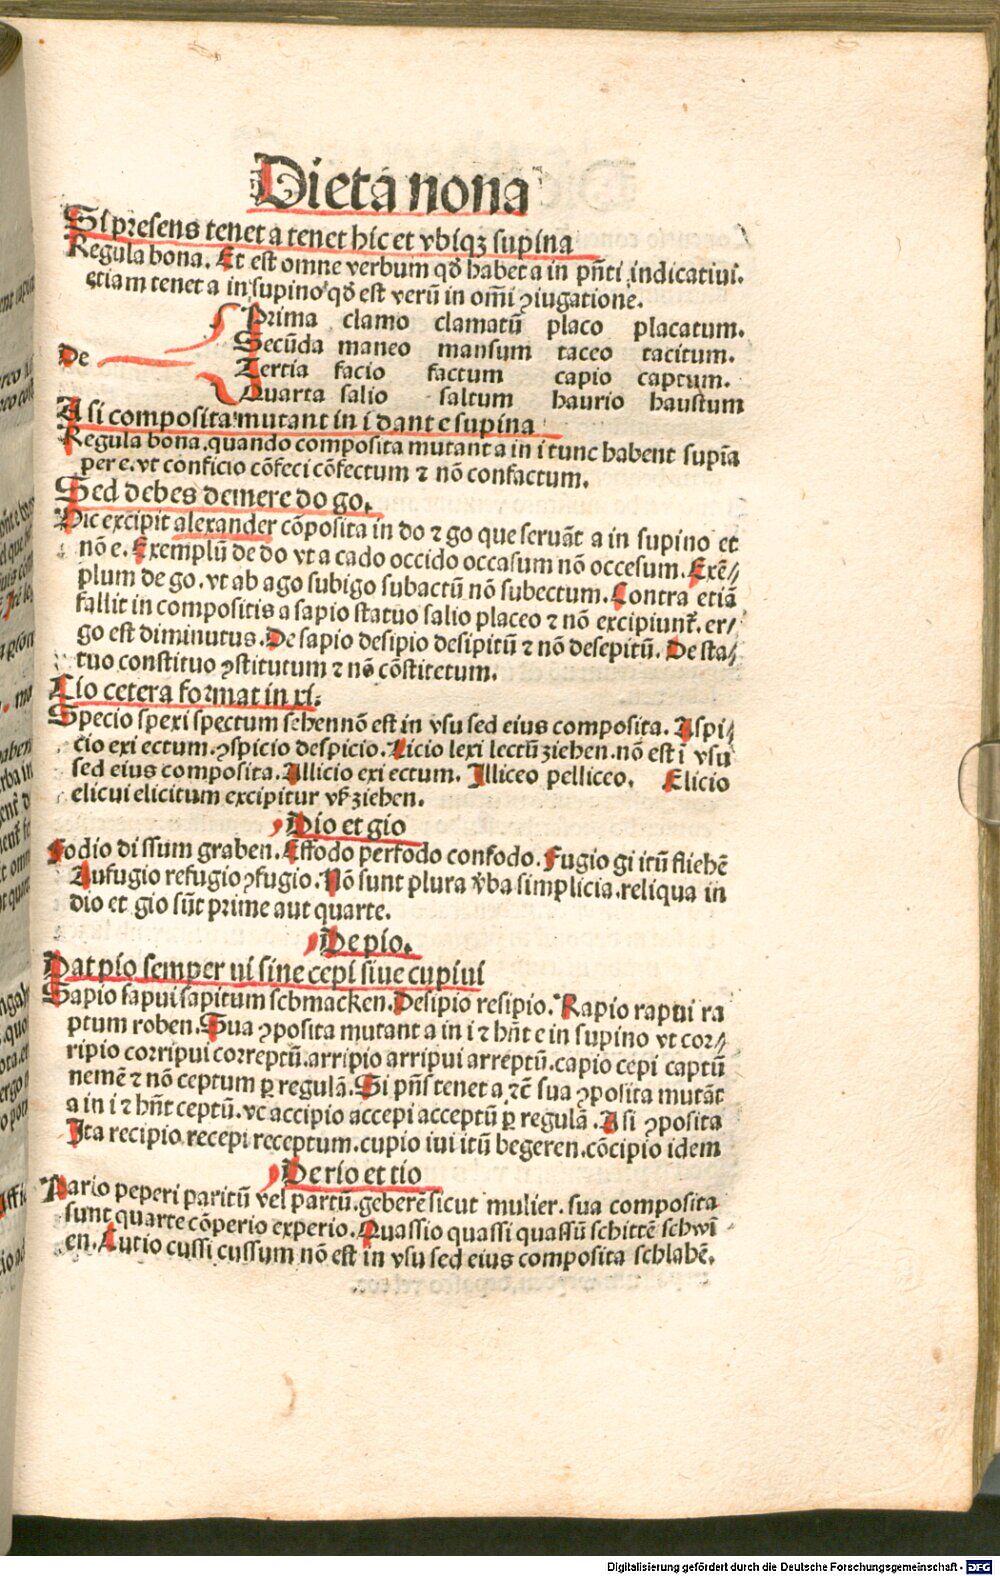 Dieta nona
Si presens tenet a tenet hic et vbiqꝫ supina
Regula bona. Et est omne verbum qđ habet a in pñti indicatiui.
etiam tenet a in supino qđ est verū in om̄i ꝯiugatione.
Prima clamo clamatū placo placatum.
Secūda maneo mansum taceo tacitum.
De
Tertia facio factum capio captum.
Quarta salio saltum haurio haustum
A si composita mutant in i dant e supina
Regula bona. quando composita mutant a in i tunc habent supīa
per e. vt conficio cōfeci cōfectum ⁊ nō confactum.
Sed debes demere do go.
Hic excipit alexander cōposita in do ⁊ go que seruāt a in supino et
nō e. Exemplū de do vt a cado occido occasum nō occesum. Exē⸗
plum de go. vt ab ago subigo subactū nō subectum. Contra etiā
fallit in compositis a sapio statuo salio placeo ⁊ nō excipiunt̄. er⸗
go est diminutus. De sapio desipio desipitū ⁊ nō desepitū. De sta⸗
tuo constituo ꝯstitutum ⁊ nō cōstitetum.
Cio cetera format in xi.
Specio spexi spectum sehen nō est in vsu sed eius composita. Aspi⸗
cio exi ectum. ꝯspicio despicio. Licio lexi lectū ziehen. nō est ī vsu
sed eius composita. Allicio exi ectum. Illiceo pelliceo. Elicio
elicui elicitum excipitur vł ziehen.
Dio et gio
Fodio di ssum graben. Effodo perfodo confodo. Fugio gi itū fliehē
Aufugio refugio ꝯfugio. Nō sunt plura v̄ba simplicia. reliqua in
dio et gio sūt prime aut quarte.
De pio.
Dat pio semper ui sine cepi siue cupiui
Sapio sapui sapitum schmacken. Desipio resipio. Rapio rapui ra
ptum roben. Sua ꝯposita mutant a in i ⁊ hn̄t e in supino vt cor⸗
ripio corripui correptū. arripio arripui arreptū. capio cepi captū
nemē ⁊ nō ceptum ꝑ regulā. Si pn̄s tenet a ⁊c̄ sua ꝯposita mutāt
a in i ⁊ hn̄t ceptū. vt accipio accepi acceptū ꝑ regulā. A si ꝯposita
Ita recipio recepi receptum. cupio iui itū begeren. cōcipio idem
De rio et tio
Pario peperi paritū vel partū. geberē sicut mulier. sua composita
sunt quarte cōperio experio. Quassio quassi quassū schittē schwī
en. Cutio cussi cussum nō est in vsu sed eius composita schlahē.
Digitalisierung gefördert durch die Deutsche Forschungsgemeinschaft - DFG